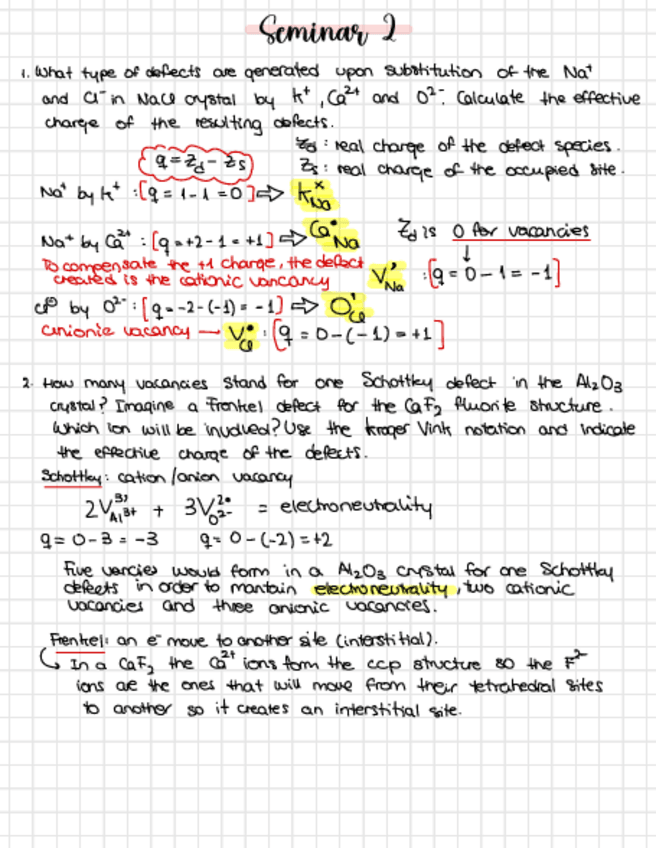 Seminar 2
1. What type of defects are generated upon substitution of the Na⁺
and Cl⁻ in NaCl crystal by K⁺, Ca²⁺ and O²⁻. Calculate the effective
charge of the resulting defects.
q = Zd - Zs
Zd : real charge of the defect species.
Zs : real charge of the occupied site.
Na⁺ by K⁺ : [q = 1 - 1 = 0] ⇒ K^x_Na
Na⁺ by Ca²⁺ : [q = +2 - 1 = +1] ⇒ Ca^•_Na
Zd is 0 for vacancies
↓
To compensate the +1 charge, the defect
created is the cationic vancancy
V'_Na : [q = 0 - 1 = -1]
Cl⊖ by O²⁻ : [q = -2 - (-1) = -1] ⇒ O'_Cl
anionic vacancy → V^•_Cl : [q = 0 - (-1) = +1]
2. How many vacancies stand for one Schottky defect in the Al₂O₃
crystal? Imagine a Frenkel defect for the CaF₂ fluorite structure.
Which ion will be involved? Use the kroger Vink notation and indicate
the effective charge of the defects.
Schottky : cation/anion vacancy
2V^3'_Al³⁺ + 3V^2•_O²⁻ = electroneutrality
q = 0 - 3 = -3 q = 0 - (-2) = +2
Five vancies would form in a Al₂O₃ crystal for one Schottky
defects in order to mantain electroneutrality, two cationic
vacancies and three anionic vacancies.
Frenkel: an e⁻ move to another site (interstitial).
↳ In a CaF₂ the Ca²⁺ ions form the ccp structure so the F²⁻
ions ae the ones that will move from their tetrahedral sites
to another so it creates an interstitial site.